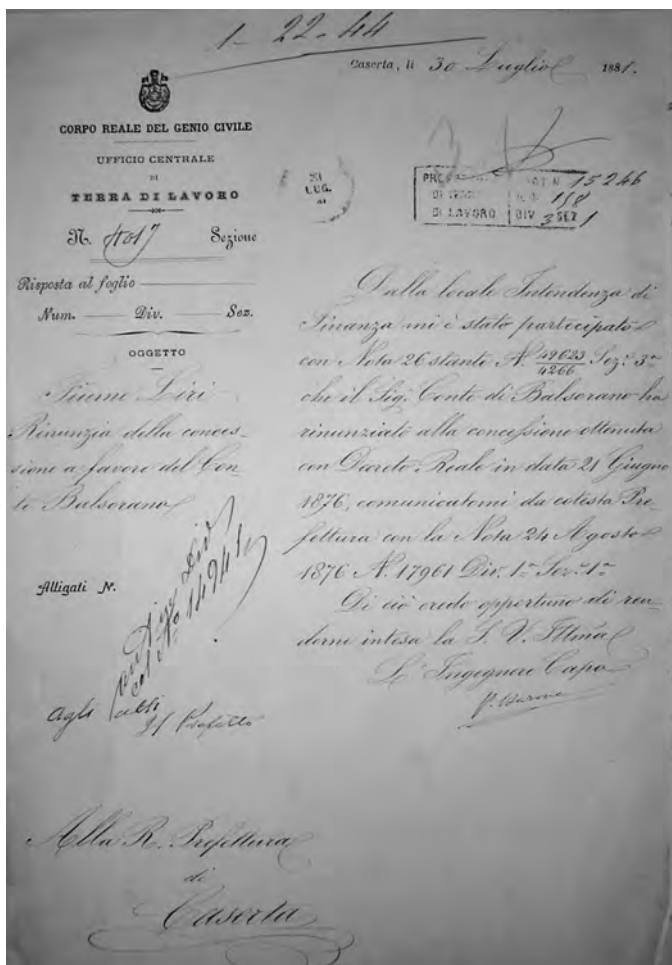 1 - 22 - 44
Caserta, li 30 Luglio 1881.
CORPO REALE DEL GENIO CIVILE
UFFICIO CENTRALE
DI
TERRA DI LAVORO
N. 4017 Sezione
Risposta al foglio
Num. Div. Sez.
OGGETTO
Fiume Liri
Rinunzia della conces-
sione a favore del Con-
te Balsorano
Alligati N.
31
LUG.
PROT. N. 15246
DI LAVORO DIV 3 SEZ 1
Dalla locale Intendenza di
Finanza mi è stato partecipato
con Nota 26 stante N. 49623/4266 Sez.e 3a
che il Sig. Conte di Balsorano ha
rinunziato alla concessione ottenuta
con Decreto Reale in data 21 Giugno
1876, comunicatomi da cotesta Pre-
fettura con la Nota 24 Agosto
1876 N. 17961 Div. 1a Sez. 1a
Di ciò credo opportuno di ren-
derne intesa la S. V. Ill̃ma
L'Ingegnere Capo
col No 14941
agli atti
Il Prefetto
Alla R. Prefettura
di
Caserta